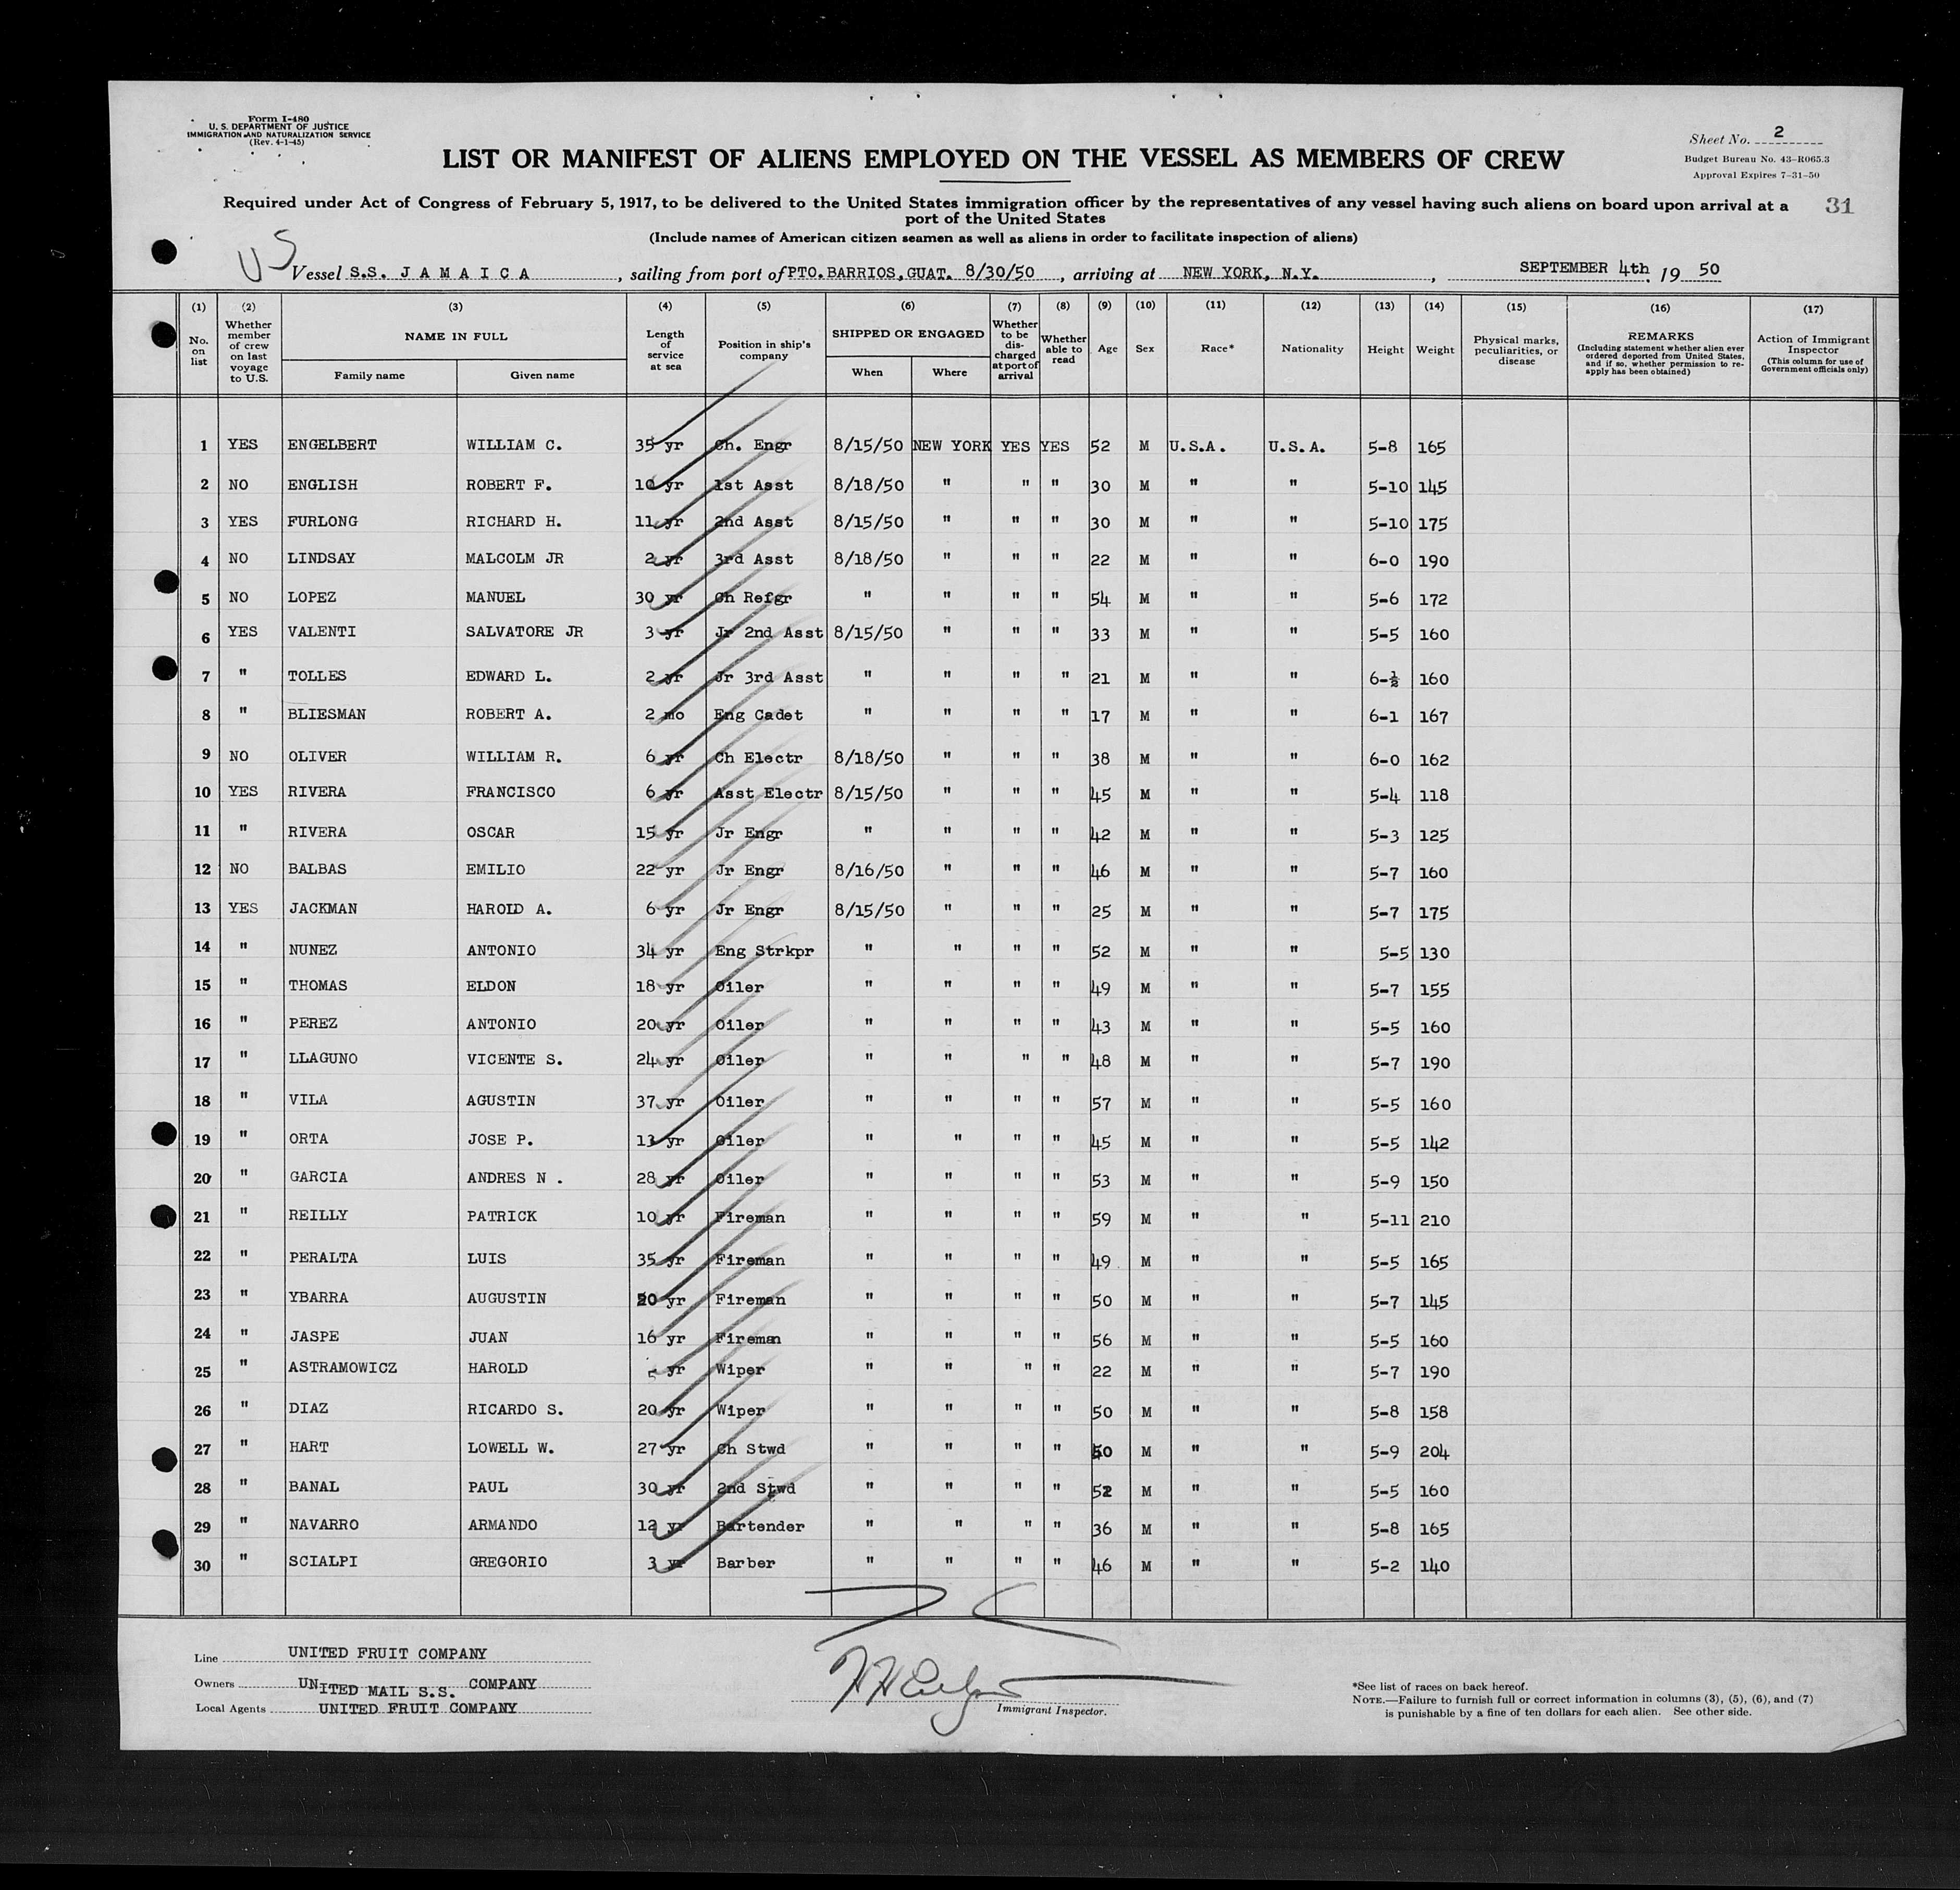 Form I-480
U. S. DEPARTMENT OF JUSTICE
IMMIGRATION AND NATURALIZATION SERVICE
(Rev. 4-1-45)
Sheet No. 2
Budget Bureau No. 43-R065.3
Approval Expires 7-31-50
LIST OR MANIFEST OF ALIENS EMPLOYED ON THE VESSEL AS MEMBERS OF CREW
Required under Act of Congress of February 5, 1917, to be delivered to the United States immigration officer by the representatives of any vessel having such aliens on board upon arrival at a
port of the United States
31
(Include names of American citizen seamen as well as aliens in order to facilitate inspection of aliens)
US
Vessel S.S. J A M A I C A, sailing from port of PTO. BARRIOS, GUAT. 8/30/50, arriving at NEW YORK, N.Y., SEPTEMBER 4th, 19 50
(1) (2) (3) (4) (5) (6) (7) (8) (9) (10) (11) (12) (13) (14) (15) (16) (17)
No. on list
Whether member of crew on last voyage to U.S.
NAME IN FULL
Family name
Given name
Length of service at sea
Position in ship's company
SHIPPED OR ENGAGED
When
Where
Whether to be discharged at port of arrival
Whether able to read
Age
Sex
Race*
Nationality
Height
Weight
Physical marks, peculiarities, or disease
REMARKS
(Including statement whether alien ever ordered deported from United States, and if so, whether permission to re-apply has been obtained)
Action of Immigrant Inspector
(This column for use of Government officials only)
1 YES ENGELBERT WILLIAM C. 35 yr Ch. Engr 8/15/50 NEW YORK YES YES 52 M U.S.A. U.S.A. 5-8 165
2 NO ENGLISH ROBERT F. 10 yr 1st Asst 8/18/50 " " " 30 M " " 5-10 145
3 YES FURLONG RICHARD H. 11 yr 2nd Asst 8/15/50 " " " 30 M " " 5-10 175
4 NO LINDSAY MALCOLM JR 2 yr 3rd Asst 8/18/50 " " " 22 M " " 6-0 190
5 NO LOPEZ MANUEL 30 yr Ch Refgr " " " " 54 M " " 5-6 172
6 YES VALENTI SALVATORE JR 3 yr Jr 2nd Asst 8/15/50 " " " 33 M " " 5-5 160
7 " TOLLES EDWARD L. 2 yr Jr 3rd Asst " " " " 21 M " " 6-½ 160
8 " BLIESMAN ROBERT A. 2 mo Eng Cadet " " " " 17 M " " 6-1 167
9 NO OLIVER WILLIAM R. 6 yr Ch Electr 8/18/50 " " " 38 M " " 6-0 162
10 YES RIVERA FRANCISCO 6 yr Asst Electr 8/15/50 " " " 45 M " " 5-4 118
11 " RIVERA OSCAR 15 yr Jr Engr " " " " 42 M " " 5-3 125
12 NO BALBAS EMILIO 22 yr Jr Engr 8/16/50 " " " 46 M " " 5-7 160
13 YES JACKMAN HAROLD A. 6 yr Jr Engr 8/15/50 " " " 25 M " " 5-7 175
14 " NUNEZ ANTONIO 34 yr Eng Strkpr " " " " 52 M " " 5-5 130
15 " THOMAS ELDON 18 yr Oiler " " " " 49 M " " 5-7 155
16 " PEREZ ANTONIO 20 yr Oiler " " " " 43 M " " 5-5 160
17 " LLAGUNO VICENTE S. 24 yr Oiler " " " " 48 M " " 5-7 190
18 " VILA AGUSTIN 37 yr Oiler " " " " 57 M " " 5-5 160
19 " ORTA JOSE P. 13 yr Oiler " " " " 45 M " " 5-5 142
20 " GARCIA ANDRES N . 28 yr Oiler " " " " 53 M " " 5-9 150
21 " REILLY PATRICK 10 yr Fireman " " " " 59 M " " 5-11 210
22 " PERALTA LUIS 35 yr Fireman " " " " 49 M " " 5-5 165
23 " YBARRA AUGUSTIN 20 yr Fireman " " " " 50 M " " 5-7 145
24 " JASPE JUAN 16 yr Fireman " " " " 56 M " " 5-5 160
25 " ASTRAMOWICZ HAROLD 5 yr Wiper " " " " 22 M " " 5-7 190
26 " DIAZ RICARDO S. 20 yr Wiper " " " " 50 M " " 5-8 158
27 " HART LOWELL W. 27 yr Ch Stwd " " " " M " " 5-9 204
28 " BANAL PAUL 30 yr 2nd Stwd " " " " 52 M " " 5-5 160
29 " NAVARRO ARMANDO 12 yr Bartender " " " " 36 M " " 5-8 165
30 " SCIALPI GREGORIO 3 yr Barber " " " " 46 M " " 5-2 140
Line UNITED FRUIT COMPANY
Owners UNITED MAIL S.S. COMPANY
Local Agents UNITED FRUIT COMPANY
Immigrant Inspector.
*See list of races on back hereof.
NOTE.—Failure to furnish full or correct information in columns (3), (5), (6), and (7)
is punishable by a fine of ten dollars for each alien. See other side.